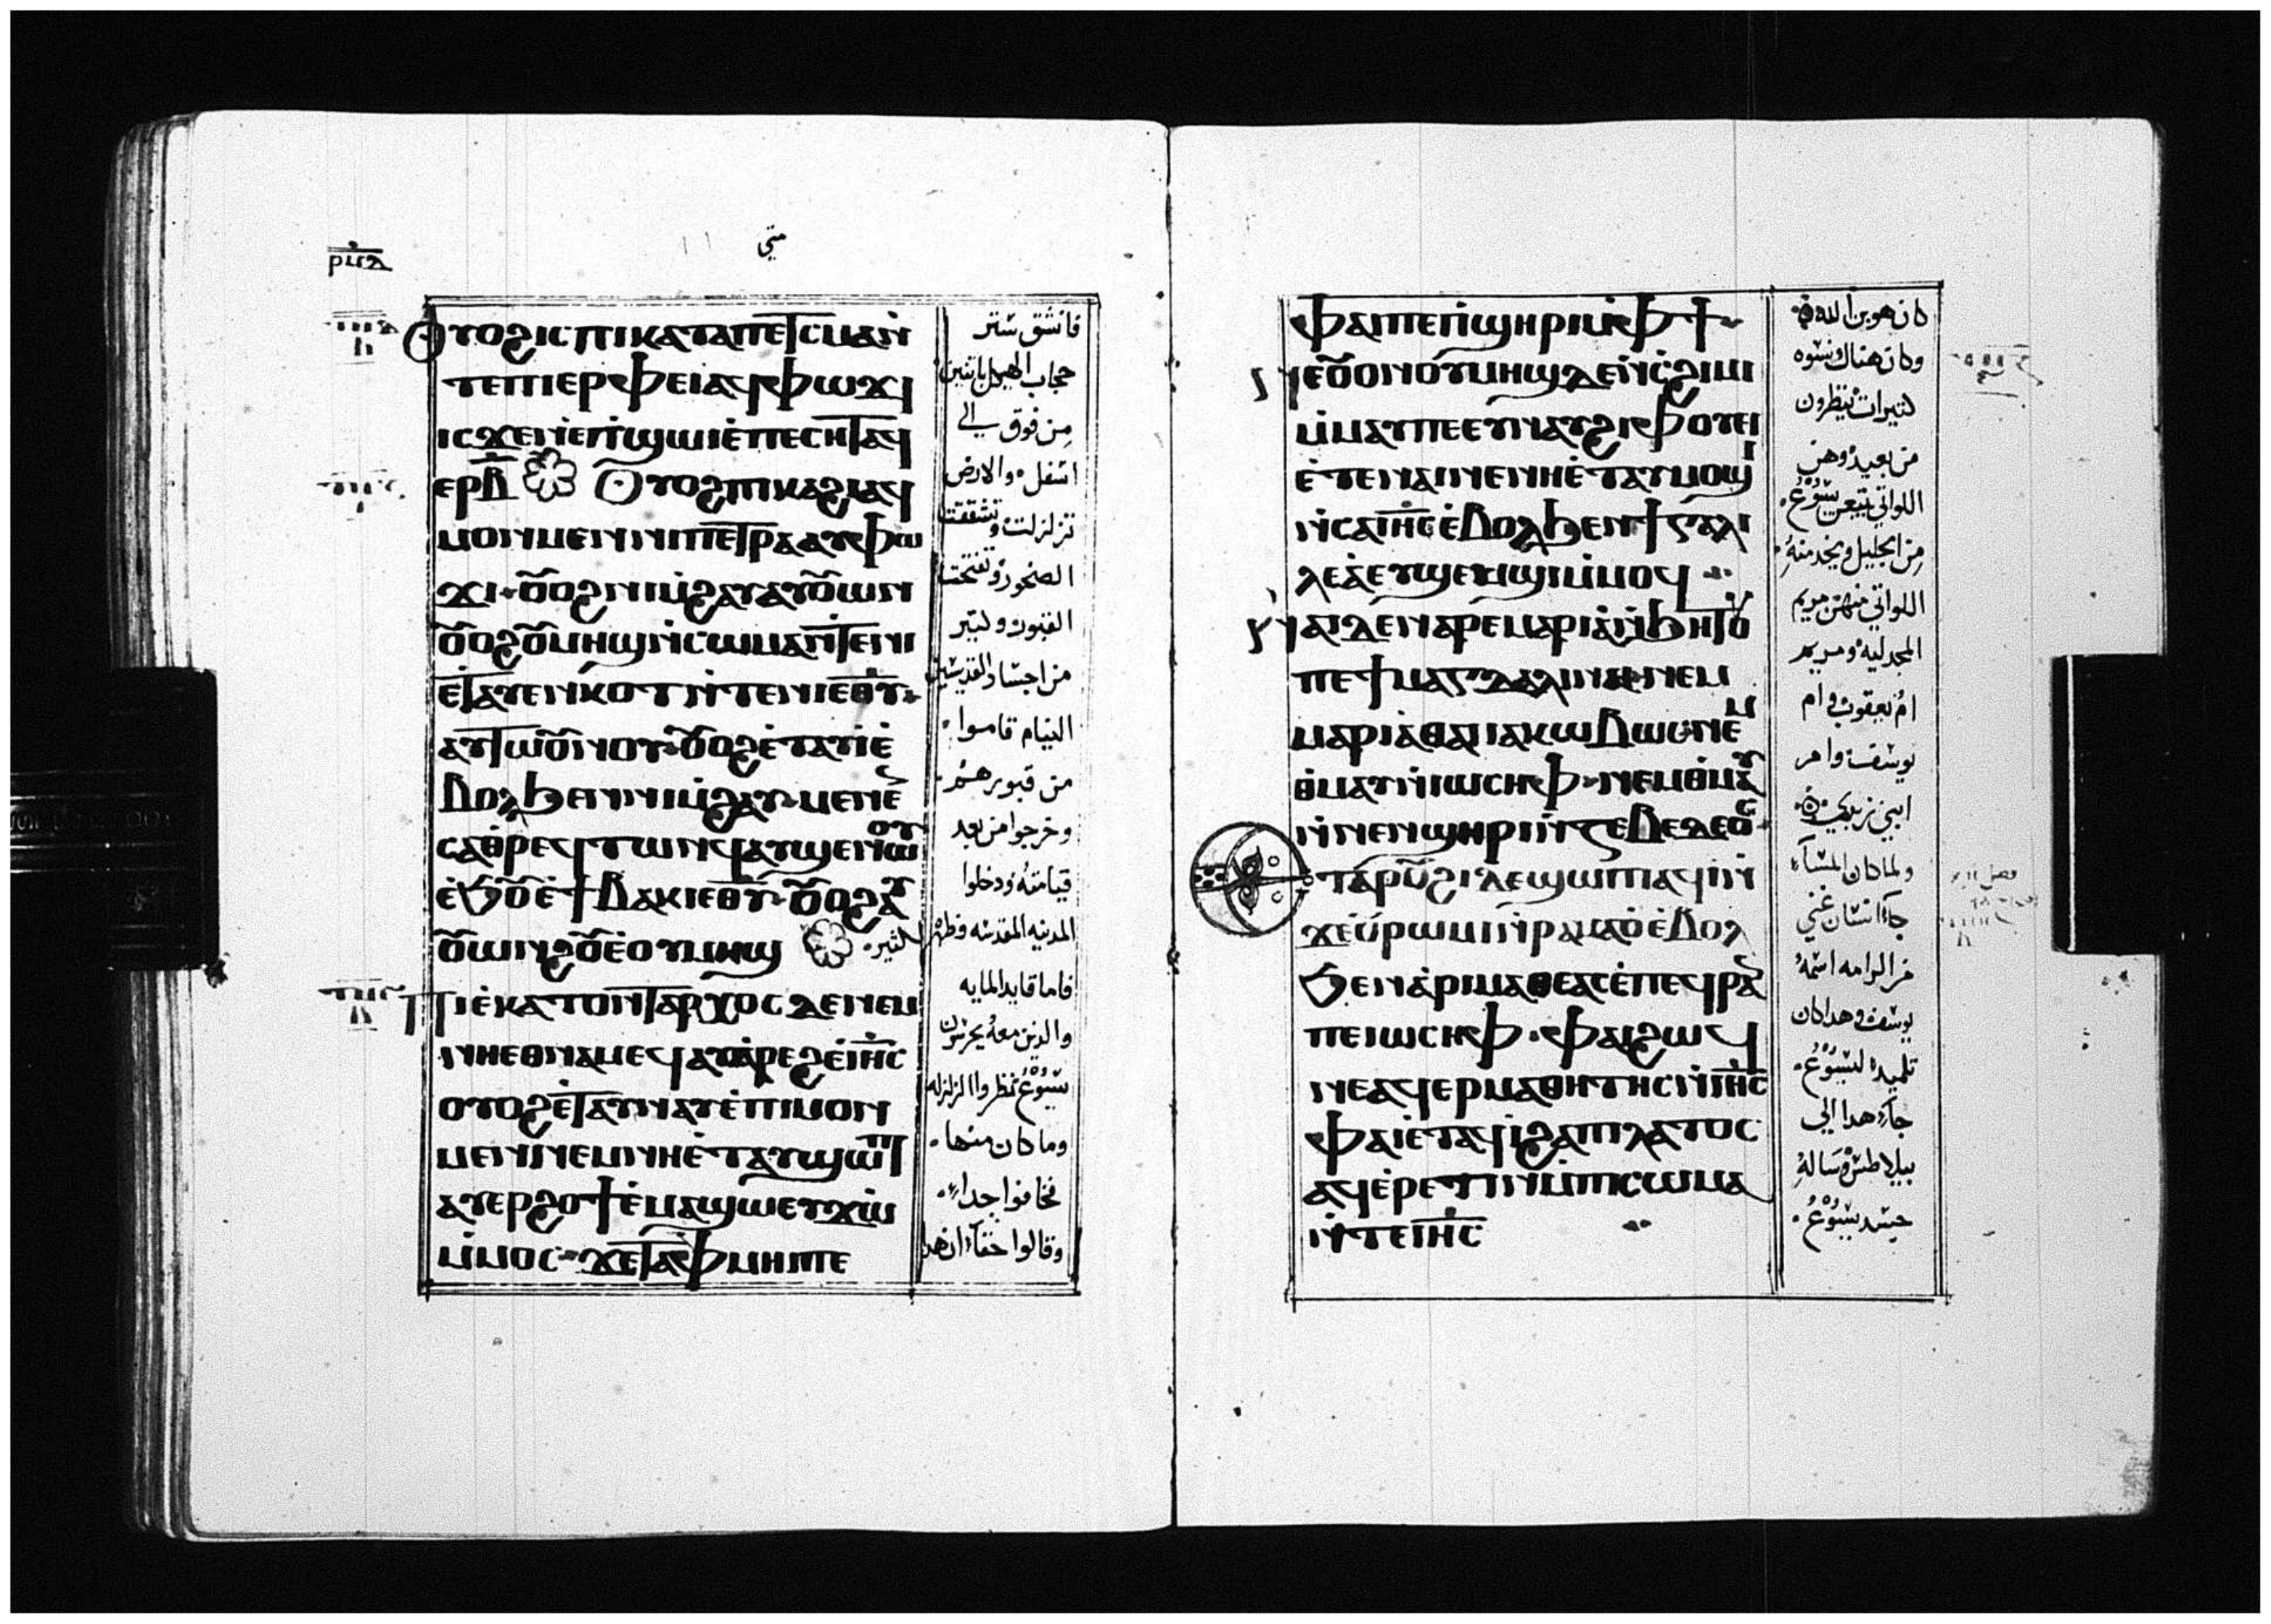 متي
Ⲟⲩⲟϩ ⲓⲥ ⲡⲓⲕⲁⲧⲁⲡⲉⲧⲥⲙⲁ ⲛ̀
ⲧⲉ ⲡⲓⲉⲣⲫⲉⲓ ⲁϥⲫⲱϫⲓ
ⲓⲥϫⲉⲛ ⲉⲡϣⲱⲓ ⲉ̀ⲡⲉⲥⲏⲧ ⲁϥ
ⲉⲣⲃ̅ Ⲟⲩⲟϩ ⲡⲓⲕⲁϩⲓ ⲁϥ
ⲙⲟⲛⲙⲉⲛ ⲛⲓⲡⲉⲧⲣⲁ ⲁⲩⲫⲱ
ϫⲓ ⲟⲩⲟϩ ⲛⲓⲙ̀ϩⲁⲩ ⲁⲩⲟⲩⲱⲛ
ⲟⲩⲟϩ ⲟⲩⲙⲏϣ ⲛ̀ⲥⲱⲙⲁ ⲛ̀ⲧⲉ ⲛⲓ
ⲉ̀ⲧⲁⲩⲉⲛⲕⲟⲧ ⲛ̀ⲧⲉ ⲛⲓⲉⲑⲩ
ⲁⲩⲧⲱⲟⲩⲛⲟⲩ ⲟⲩⲟϩ ⲉ̀ⲧⲁⲩⲓ̀ ⲉ̀
ⲃⲟⲗϧⲉⲛ ⲛⲓⲙ̀ϩⲁⲩ ⲙⲉⲛⲉ
ⲥⲁ ⲑⲣⲉϥⲧⲱⲛϥ ⲁⲩϣⲉⲛⲱⲟⲩ
ⲉ̀ϧⲟⲩⲛ ⲉ̀ϯⲃⲁⲕⲓ ⲉⲑⲩ ⲟⲩⲟϩ ⲁⲩ
ⲟⲩⲱⲛϩⲟⲩ ⲉ̀ⲟⲩⲙⲏϣ
Ⲡⲓⲉ̀ⲕⲁⲧⲟⲛⲧⲁⲣⲭⲟⲥ ⲇⲉ ⲛⲉⲙ
ⲛⲏⲉⲑⲛⲁⲙⲉϥ ⲁⲩⲁ̀ⲣⲉϩ ⲉ̀ⲓⲏⲥ
ⲟⲩⲟϩ ⲉ̀ⲧⲁⲩⲛⲁⲩ ⲉ̀ⲡⲓⲙⲟⲛ
ⲙⲉⲛ ⲛⲉⲙ ⲛⲏⲉ̀ⲧⲁⲩϣⲱⲡⲓ
ⲁⲩⲉⲣϩⲟϯ ⲉ̀ⲙⲁϣⲱ ⲉⲩϫⲱ
ⲙ̀ⲙⲟⲥ ϫⲉ ⲧⲁⲫⲙⲏⲓ ⲡⲉ
فانشق ستر
حجاب الهيكل باثنين
من فوق الي
اسفل والارض
تزلزلت وتشققت
الصخور وتفتحت
القبور وكثير
من اجساد القديسين
النيام قاموا
من قبورهم
وخرجوا من بعد
قيامته ودخلوا
المدينه المقدسه وظهروا
لكثير
فاما قايد المايه
والذين معه يحرسون
يسوع نظروا الزلزله
وما كان منها
فخافوا جدا
وقالوا حقا ان هذا
ⲫⲁⲓ ⲡⲉ ⲡ̀ϣⲏⲣⲓ ⲙ̀ⲫϯ
ⲛⲉ ⲟⲩⲟⲛ ⲟⲩⲙⲏϣ ⲇⲉ ⲛ̀ⲥϩⲓⲙⲓ
ⲙ̀ⲙⲁⲩ ⲡⲉ ⲉⲩⲛⲁⲩ ϩⲓ ⲫⲟⲩⲉⲓ
ⲉ̀ⲧⲉ ⲛⲁⲓ ⲛⲉ ⲛⲏⲉ̀ⲧⲁⲩⲙⲟϣⲓ
ⲛ̀ⲥⲁ ⲓⲏⲥ ⲉ̀ⲃⲟⲗϧⲉⲛ ϯⲅⲁⲗⲓ
ⲗⲉⲁ̀ ⲉⲩϣⲉⲙϣⲓ ⲙ̀ⲙⲟϥ
ⲛⲁⲓ ⲇⲉ ⲛⲁⲣⲉ ⲙⲁⲣⲓⲁ̀ ⲛ̀ϧⲏⲧⲟⲩ
ⲡⲉ ϯⲙⲁⲅⲇⲁⲗⲓⲛⲏ ⲛⲉⲙ
ⲙⲁⲣⲓⲁ̀ ⲑⲁ ⲓⲁⲕⲱⲃⲱⲥ ⲛⲉⲙ
ⲑ̀ⲙⲁⲩ ⲛ̀ⲓⲱⲥⲏⲫ ⲛⲉⲙ ⲑ̀ⲙⲁⲩ
ⲛ̀ⲛⲉⲛϣⲏⲣⲓ ⲛ̀ⲍⲉⲃⲉⲇⲉⲟⲥ
ⲉⲧⲁ ⲣⲟⲩϩⲓ ⲇⲉ ϣⲱⲡⲓ ⲁϥⲓ̀ ⲛ̀
ϫⲉ ⲟⲩⲣⲱⲙⲓ ⲛ̀ⲣⲁⲙⲁⲟ̀ ⲉ̀ⲃⲟⲗ
ϧⲉⲛ ⲁ̀ⲣⲓⲙⲁⲑⲉⲁⲥ ⲉ̀ⲡⲉϥⲣⲁⲛ
ⲡⲉ ⲓⲱⲥⲏⲫ ⲫⲁⲓ ϩⲱϥ
ⲛⲉ ⲁϥⲉⲣⲙⲁⲑⲏⲧⲏⲥ ⲛ̀ⲓⲏⲥ
ⲫⲁⲓ ⲉ̀ⲧⲁϥⲓ̀ ϩⲁ ⲡⲓⲗⲁⲧⲟⲥ
ⲁϥⲉ̀ⲣⲉⲧⲓⲛ ⲙ̀ⲡⲓⲥⲱⲙⲁ
ⲛ̀ⲧⲉ ⲓⲏⲥ
كان هو بن الله
وكان هناك نسوه
كثيرات ينظرون
من بعيد وهن
اللواتي تبعن يسوع
من الجليل ويخدمنه
اللواتي منهن مريم
المجدليه ومريم
ام يعقوب وام
يوسف وامر
ابني زبدي
ولما كان المساء
جاء انسان غني
من الرامه اسمه
يوسف وهدا كان
تلميد ليسوع
جاء هدا الي
بيلاطس وساله
جسد يسوع